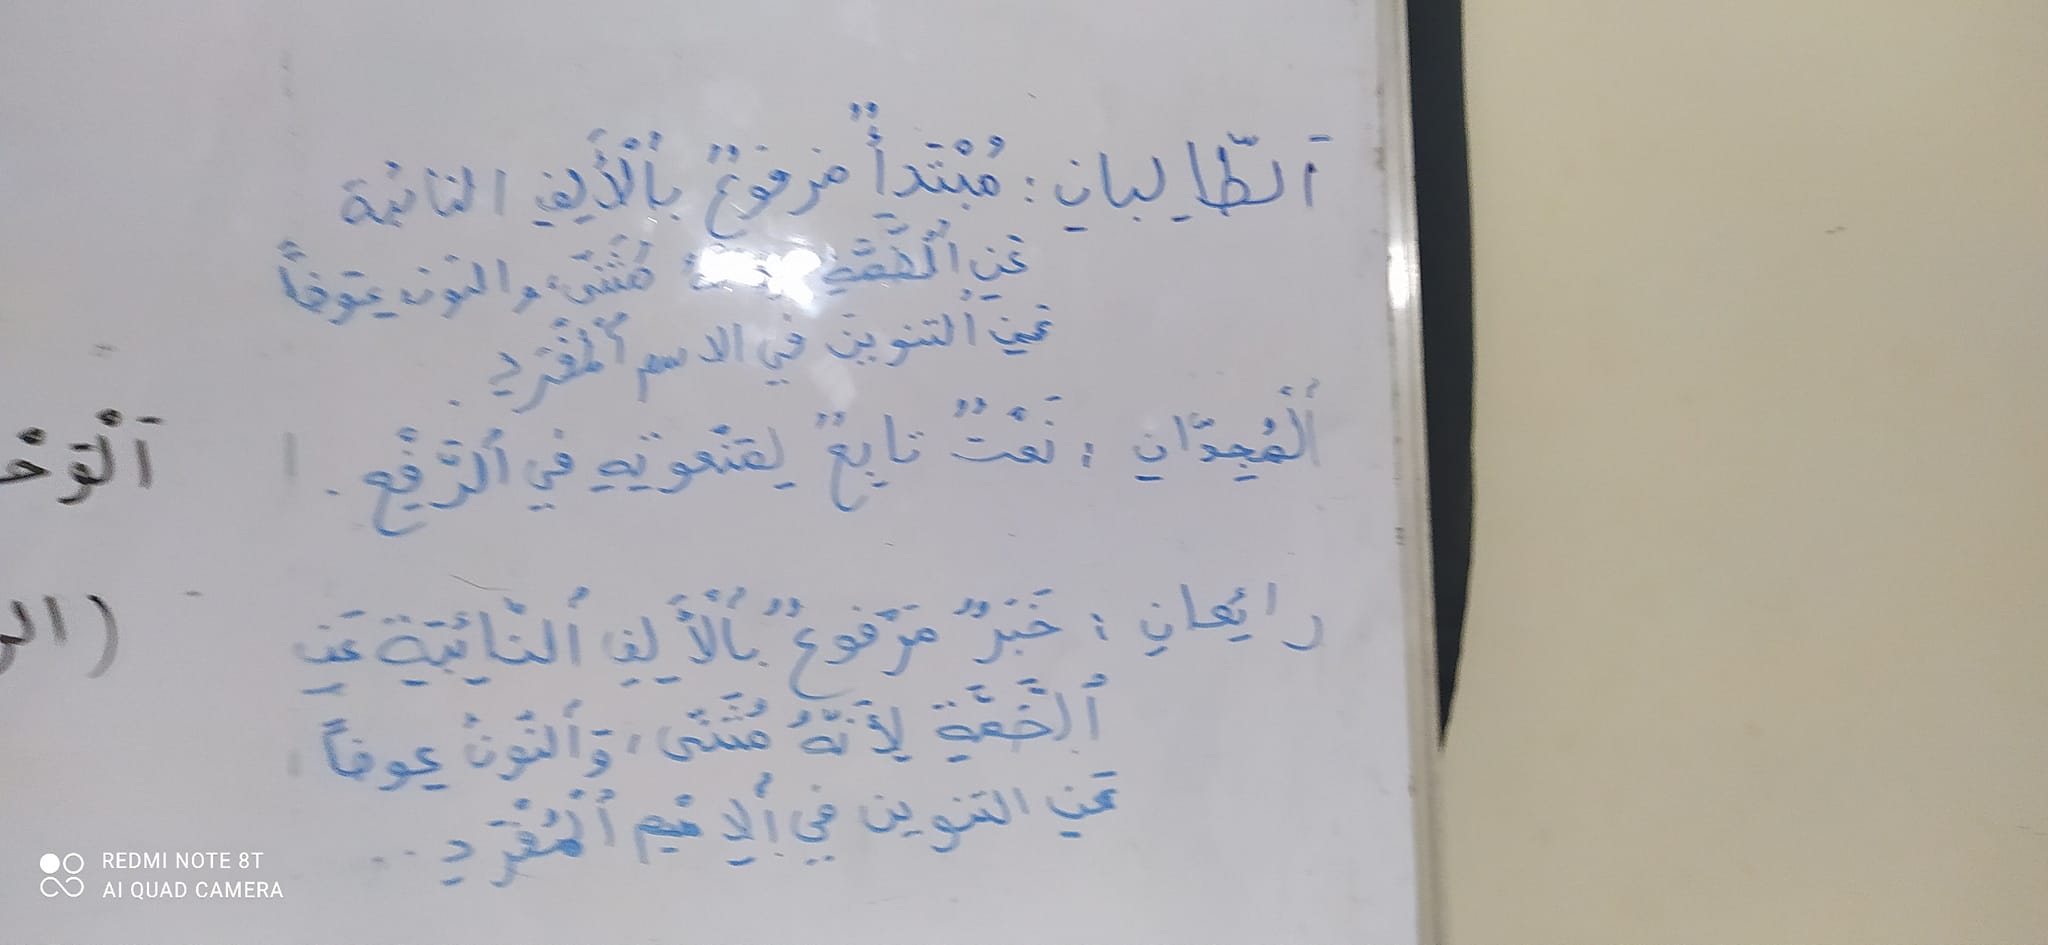 اَلطَّالِبانِ : مُبْتَدَأٌ مَرفوعٌ بِاُلْأَلِفِ النائبة
عَنِ اُلضَّمَّةِ مُثَنّىً، والنون عوضاً
عَنِ اُلتنوين في الاسم اُلْمُفْرَدِ .
اُلْمُجِدّانِ : نَعْتٌ تابِعٌ لِمَنْعوتِهِ في اُلرَّفْعِ .
رائِعانِ : خَبَرٌ مَرْفوعٌ بِاُلْأَلِفِ اُلنّائِبَةِ عَنِ
اُلضَّمَّةِ لِأَنَّهُ مُثَنّىً، وَاُلنّونُ عوضاً
عَنِ التنوين في اُلاِسْمِ اُلْمُفْرَدِ ..
اَلْوَحْ
(الر
REDMI NOTE 8T
AI QUAD CAMERA